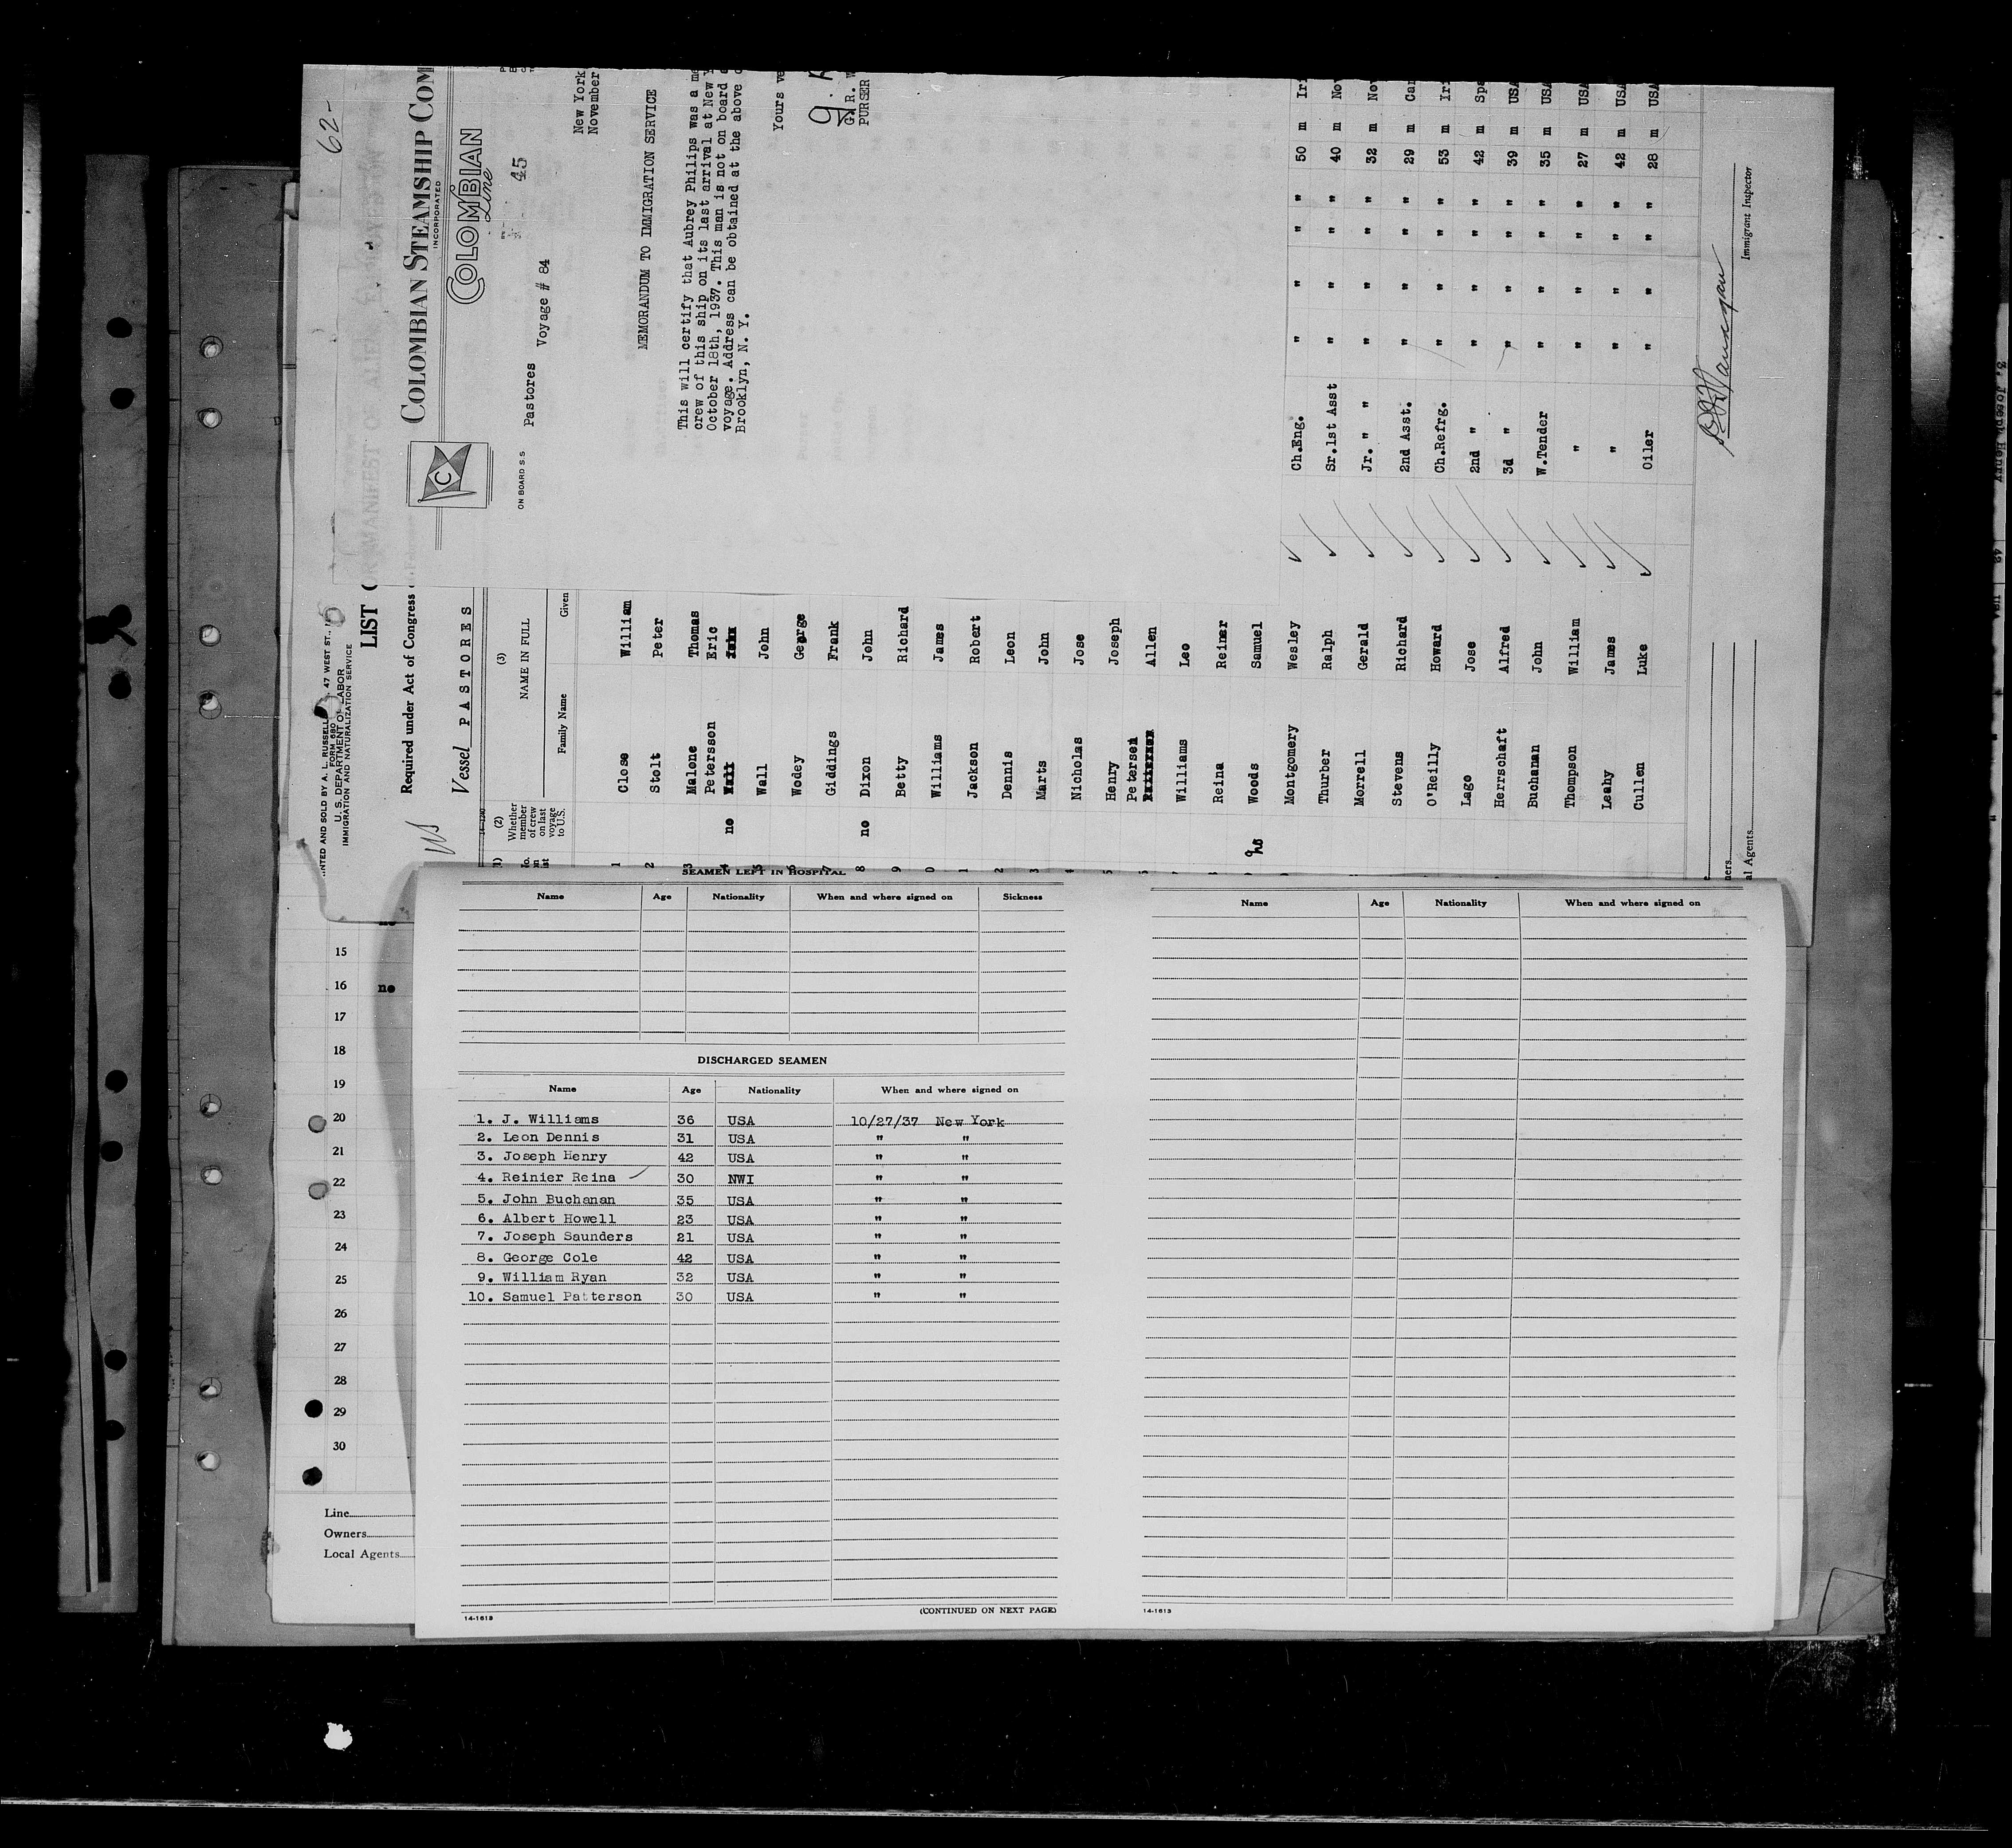 62-
COLOMBIAN STEAMSHIP COM
INCORPORATED
COLOMBIAN
Line
C
45
ON BOARD S.S. Pastores Voyage # 84
New York
November
MEMORANDUM TO IMMIGRATION SERVICE
This will certify that Aubrey Philips was a me
crew of this ship on its last arrival at New Y
October 18th, 1937. This man is not on board
voyage. Address can be obtained at the above
Brooklyn, N. Y.
Yours ve
G.R. W
PURSER
47 WEST ST.,
NTED AND SOLD BY A. L. RUSSELL
FORM 680
U. S. DEPARTMENT OF LABOR
IMMIGRATION AND NATURALIZATION SERVICE
LIST
Required under Act of Congress
Vessel PASTORES
(2) (3)
Whether member of crew on last voyage to U.S. NAME IN FULL
Family Name Given
1 Close William
2 Stolt Peter
3 Malone Thomas
Petersson Eric
4 no
5 Wall John
6 Wodey George
7 Giddings Frank
8 no Dixon John
9 Betty Richard
0 Williams James
1 Jackson Robert
2 Dennis Leon
3 Marts John
4 Nicholas Jose
5 Henry Joseph
Petersen Allen
Williams Leo
Reina Reiner
Woods Samuel
Montgomery Wesley Ch.Eng. " " " " 50 m Iri
Thurber Ralph Sr.1st Asst " " " " 40 m No
Morrell Gerald Jr. " " " " " " 32 m No
Stevens Richard 2nd Asst. " " " " 29 m Can
O'Reilly Howard Ch.Refrg. " " " " 53 m Iri
Lago Jose 2nd " " " " " 42 m Spa
Herrschaft Alfred 3d " " " " " 39 m USA
Buchanan John W.Tender " " " " 35 m USA
Thompson William " " " " " 27 m USA
Leahy James " " " " " 42 m USA
Cullen Luke Oiler " " " " 28 m USA
Immigrant Inspector
ners
al Agents
15
16 no
17
18
19
20
21
22
23
24
25
26
27
28
29
30
Line
Owners
Local Agents
SEAMEN LEFT IN HOSPITAL
Name Age Nationality When and where signed on Sickness
DISCHARGED SEAMEN
Name Age Nationality When and where signed on
1. J. Williams 36 USA 10/27/37 New York
2. Leon Dennis 31 USA " "
3. Joseph Henry 42 USA " "
4. Reinier Reina 30 NWI " "
5. John Buchanan 35 USA " "
6. Albert Howell 23 USA " "
7. Joseph Saunders 21 USA " "
8. George Cole 42 USA " "
9. William Ryan 32 USA " "
10. Samuel Patterson 30 USA " "
14-1613
(CONTINUED ON NEXT PAGE)
Name Age Nationality When and where signed on
14-1613
3. Joseph Henry 42 USA